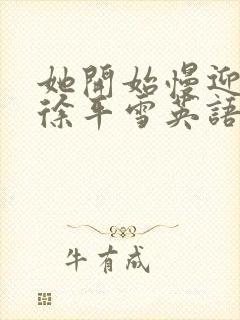 她開始慢迎
徐平雪英語
牛有成